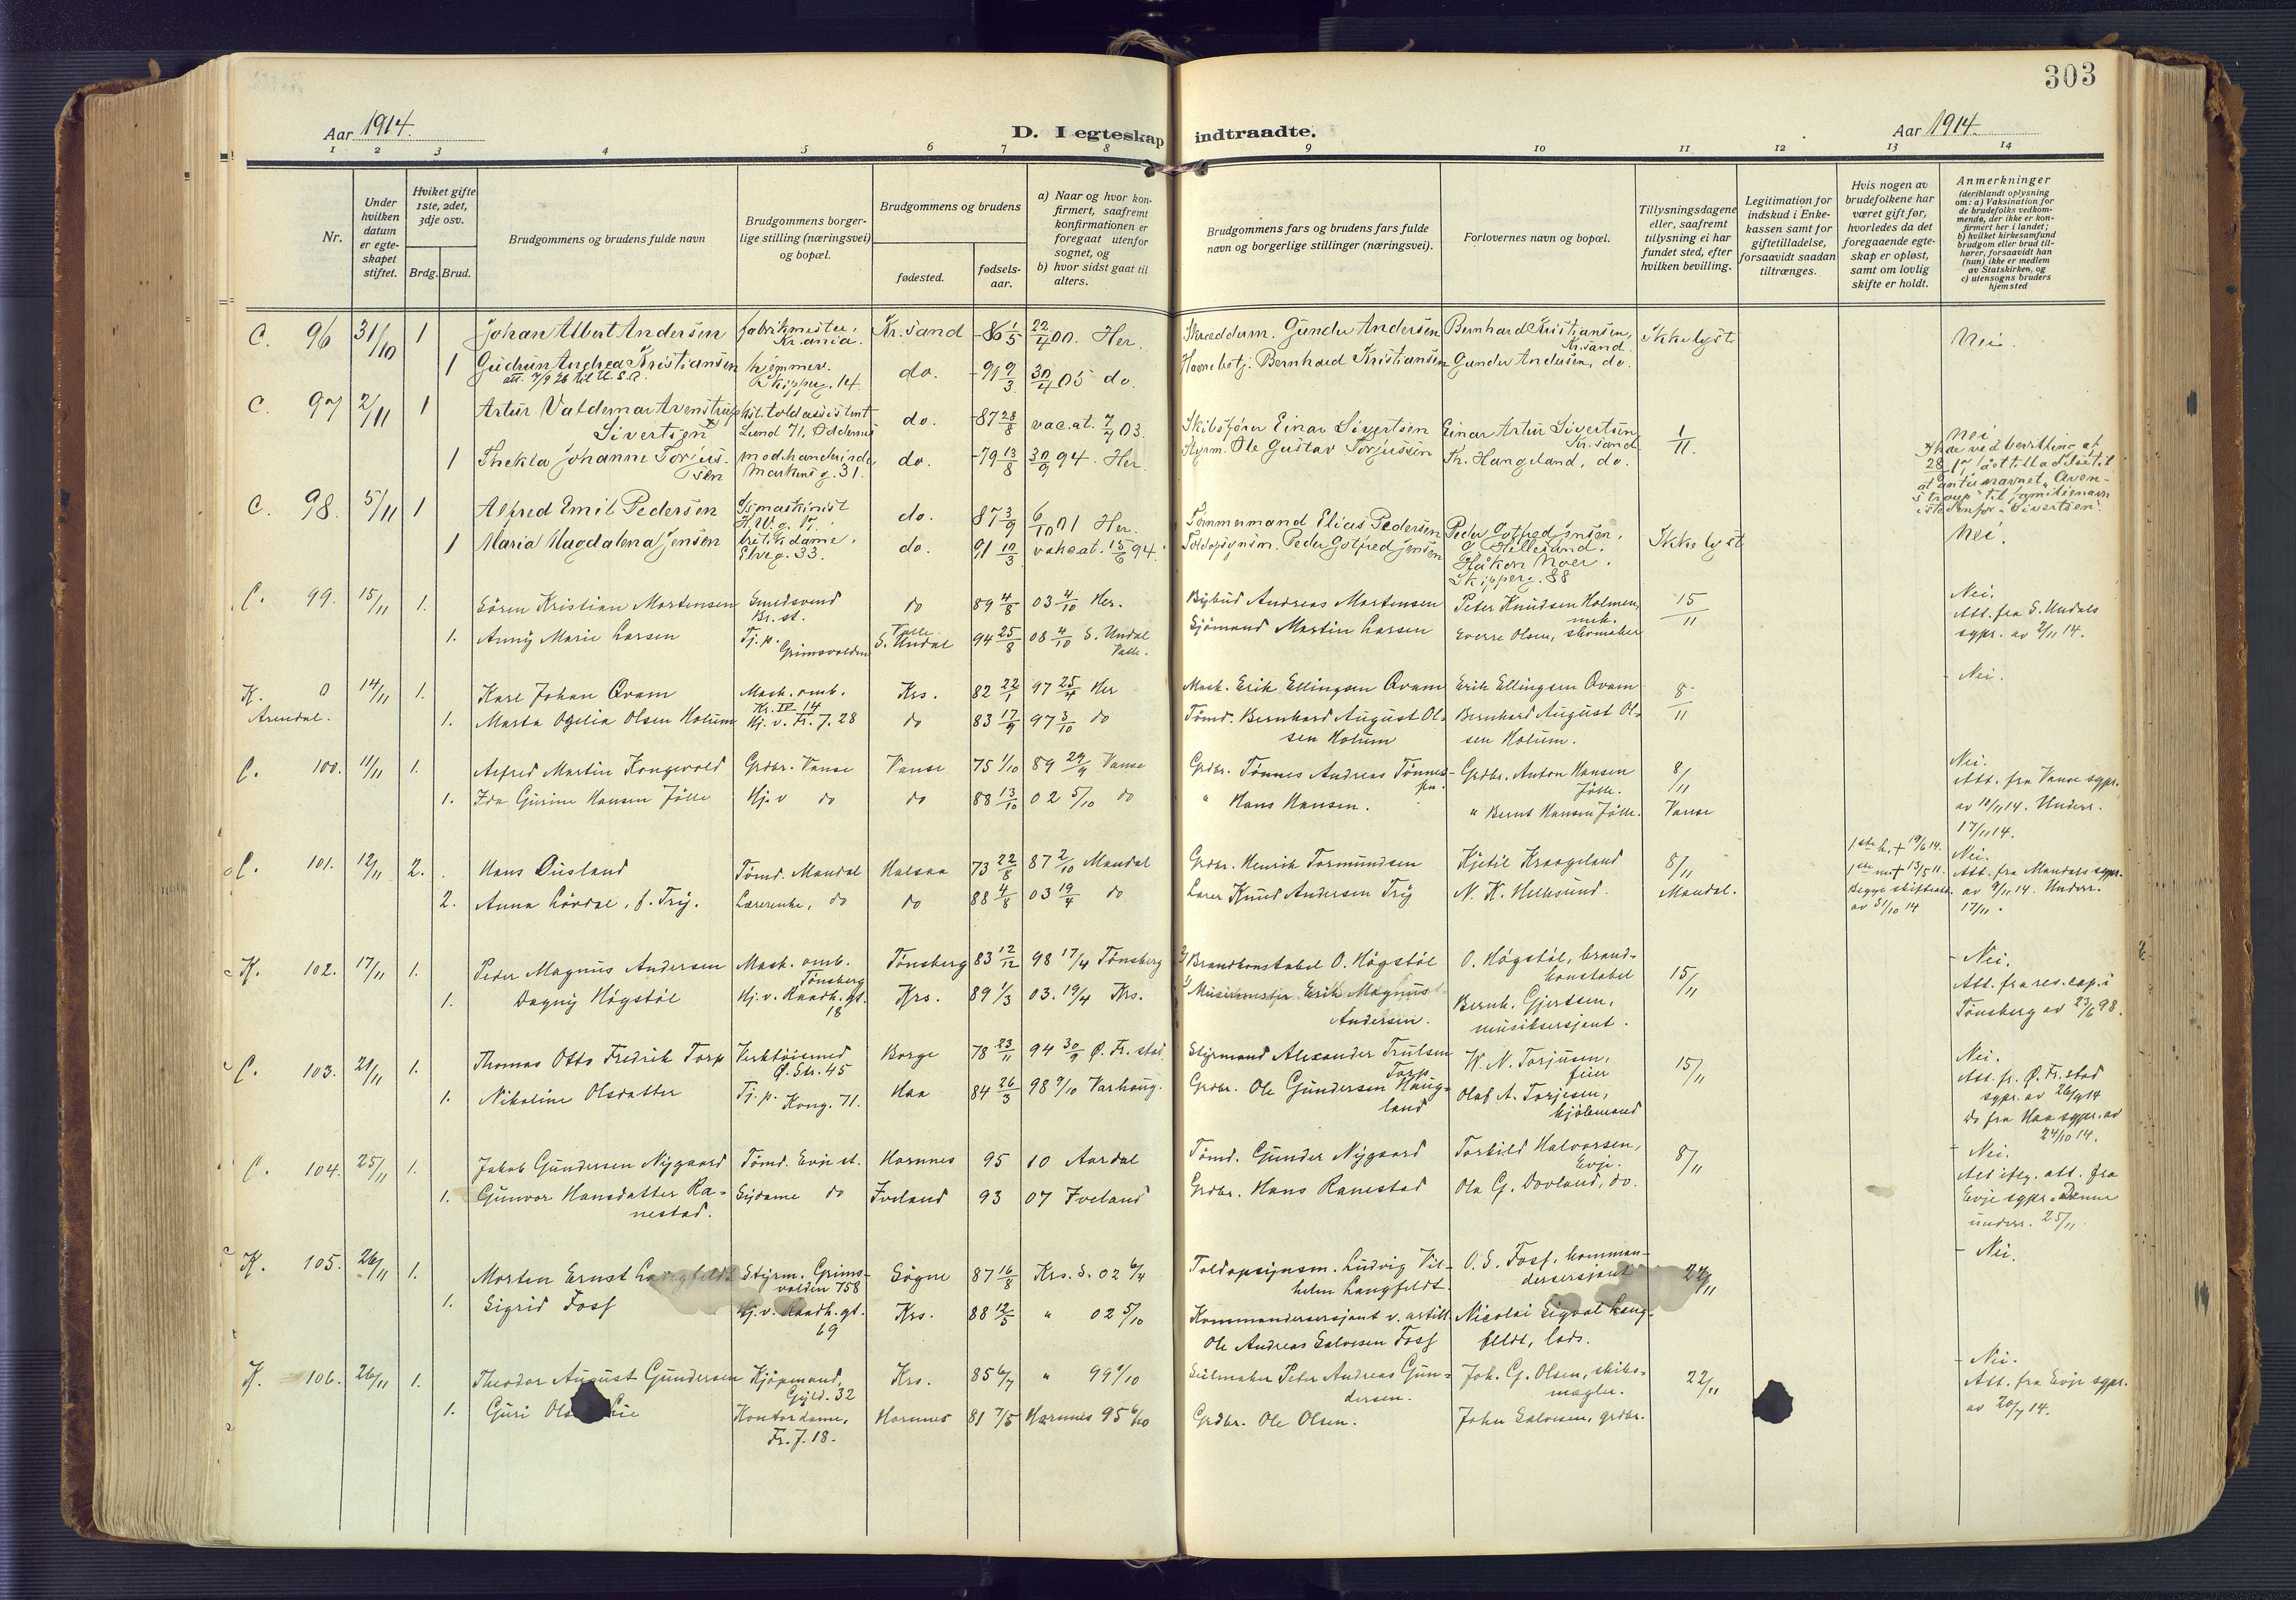 303
Aar 1914.
D. I egteskap indtraadte.
Aar 1914.
1 2 3 4 5 6 7 8 9 10 11 12 13 14
Nr.
Under hvilken datum er egteskapet stiftet.
Hviket gifte 1ste, 2det, 3dje osv.
Brdg. Brud.
Brudgommens og brudens fulde navn
Brudgommens borgerlige stilling (næringsvei) og bopæl.
Brudgommens og brudens
fødested.
fødselsaar.
a) Naar og hvor konfirmert, saafremt konfirmationen er foregaat utenfor sognet, og
b) hvor sidst gaat til alters.
Brudgommens fars og brudens fars fulde navn og borgerlige stillinger (næringsvei).
Forlovernes navn og bopæl.
Tillysningsdagene eller, saafremt tillysning ei har fundet sted, efter hvilken bevilling.
Legitimation for indskud i Enkekassen samt for giftetilladelse, forsaavidt saadan tiltrænges.
Hvis nogen av brudefolkene har været gift før, hvorledes da det foregaaende egteskap er opløst, samt om lovlig skifte er holdt.
Anmerkninger
(deriblandt oplysning om: a) Vaksination for de brudefolks vedkommende, der ikke er konfirmert her i landet; b) hvilket kirkesamfund brudgom eller brud tilhører, forsaavidt han (hun) ikke er medlem av Statskirken, og c) utensogns bruders hjemsted
C. 96 31/10 1 Johan Albert Andersen fabrikmester, Kr.ania. Kr.sand -86 1/5 22/4 00. Her. Skræddərm. Gunder Andersen Bernhard Kristiansen, Kr.sand. Ikke lyst Nei.
1 Gudrun Andrea Kristiansen hjemmev. Skipperg. 14 do. -91 9/3 30/4 05 do. Bernhard Kristiansen Gunder Andersen, do.
att. 7/9 26 til U.S.A.
C. 97 2/11 1 Artur Valdemar Avenstrup Sivertsen kst. toldassistent Lund 71, Oddernes do. -87 28/8 vac.at. 7/4 03. Skibsfører Einar Sivertsen Einar Artur Sivertsen Kr.sand 1/11. Nei
1 Thekla Johanne Torjussen modehandlerinde, Markens g. 31. do. -79 13/8 30/9 94. Her. Styrm. Ole Gustav Torjussen Th. Haugeland, do.
C. 98. 5/11 1 Alfred Emil Pedersen do. 87 3/9 6/10 01 Her. Tømmermand Elias Pedersen Peder Gotfred Jensen, Ikke lyst Nei.
1 Maria Magdalena Jensen butikdame, Elveg. 33. do. 91 10/3 Toldopsynsm. Peder Gotfred Jensen Håkon Moer. Skipperg. 88
C. 99. 15/11 1. Sören Kristian Mortensen Smedsvend Br. st. do 89 4/8 03 4/10 Her. Bybud Andreas Mortensen Peter Knudsen Holmen, 15/11 Nei.
1. Anny Marie Larsen Tj. p. Grimsvolden Valle S. Undal 94 25/8 08 4/10 S. Undal Valle. Sjömand Martin Larsen Sverre Olsen, skomaker Att. fra S. Undals sgpr. av 2/11 14.
K. 0 14/11 1. Karl Johan Qvam Mask. omb. Kr. IV 14 Krs. 82 22/1 97 25/4 Her Mask. Erik Ellingsen Qvam Erik Ellingsen Qvam 8/11 - Nei.
Arendal. 1. Marta Ogelia Olsen Holum Hj. v. Fr. J. 28 do 83 17/9 97 3/10 do Tömd. Bernhard August Olsen Holum Bernhard August Olsen Holum.
C. 100. 11/11 1. Alfred Martin Kongevold Grdbr. Vanse Vanse 75 1/10 89 29/9 Vanse Grdbr. Tönnes Andreas Tönnes- Grdbr. Anton Hansen Jölle. 8/11 Nei.
1. Ida Gurine Hansen Jölle Hj. v do do 88 13/10 02 5/10 do " Hans Hansen. " Bernt Hansen Jölle. Vanse Att. fra Vanse sgpr. av 10/11 14. Underr. 17/11 14.
C. 101. 12/11 2. Hans Ousland Tömd. Mandal Halsaa 73 22/8 87 2/10 Mandal Grdbr. Henrik Tormundsen Kjetil Kraageland 8/11 1ste h. + 19/6 14. Nei.
2. Anna Lövdal, f. Try. Lærerenke, do do 88 4/8 03 19/4 do Lærer Knud Andersen Try N. K. Hellesund. Mandal. 1ste m. + 13/5 11. Begge skifteatt. av 31/10 14 Att. fra Mandals sgpr. av 9/11 14. Underr. 17/11.
K. 102. 17/11 1. Peder Magnus Andersen Mask. omb. Tönsberg Tönsberg 83 12/12 98 17/4 Tönsberg Brandkonstabel O. Högstöl O. Högstöl, brandkonstabel 15/11 - Nei.
1. Dagny Högstöl Hj. v. Raadh. gt. 18 Krs. 89 1/3 03. 19/4 Krs. Erik Magnus Andersen. Bernh. Gjertsen, musiksersjant. Att. fra res. cap. i Tönsberg av 23/6 98.
C. 103. 21/11 1. Thomas Otto Fredrik Torp Verktöismed Ø. Str. 45 Borge 78 23/11 94 30/9 Ø. Fr. stad. Styrmand Alexander Trulsen Torp W. N. Torjusen, feier 15/11 Nei.
1. Nikoline Olsdatter Tj. p. Kong. 71. Haa 84 26/3 98 9/10 Varhaug. Grdbr. Ole Gundersen Haugland Olaf A. Torjesen, kjölemand Att. fr. Ø. Fr. stad sgpr. av 26/9 14 Do fra Haa sgpr. av 24/10 14.
C. 104. 25/11 1. Jakob Gundersen Nygaard Tömd. Evje st. Hornnes 95 10 Aardal Tömd. Gunder Nygaard Torkild Halvorsen, Evje. 8/11 - Nei.
1. Gunvor Hansdatter Ranestad. Sydame do Iveland 93 07 Iveland Grdbr. Hans Ranestad Ola G. Dovland, do. Alt iflg. att. fra Evje sgpr. Denne underr. 25/11.
K. 105. 26/11 1. Morten Ernst Langfeldt Styrm. Grimsvolden 758 Sögne 87 16/8 Krs. S. 02 6/4 Toldopsynsm. Ludvig Vilhelm Langfeldt. O. S. Foss, kommandersersjant 22/11 - Nei.
1. Sigrid Foss Hj. v. Raadh. gt. 69 Krs. 88 12/5 " 02 5/10 Kommandersersjant v. artill. Ole Andreas Salvesen Foss Nicolai Sigval Langfeldt, lods.
K. 106. 26/11 1. Theodor August Gundersen Kjöpmand, Gyld. 32 Krs. 85 6/7 " 99 1/10 Seilmaker Peter Andreas Gundersen. Joh. G. Olsen, skibsmægler. 22/11 - Nei.
1. Guri Lie Kontordame, Fr. J. 18. Hornnes 81 7/5 Hornnes 95 6/10 Grdbr. Ole Olsen. John Salvesen, grdbr. Att. fra Evje sgpr. av 20/7 14.